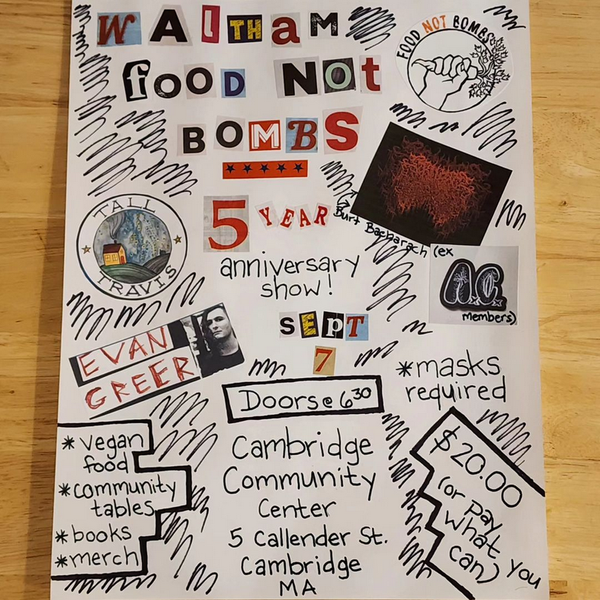 WALTHAM
FOOD NOT BOMBS
fOOD NOt
BOMBS
5 YEAR
Burt Bacharach (ex
A.C.
members)
TALL
TRAVIS
anniversary
show!
SEPT
7
EVAN
GREER
*masks
required
Doors@ 6³⁰
* vegan
food
* community
tables
* books
* merch
Cambridge
Community
Center
5 Callender St.
Cambridge
MA
$20.00
(or pay
what you
can)